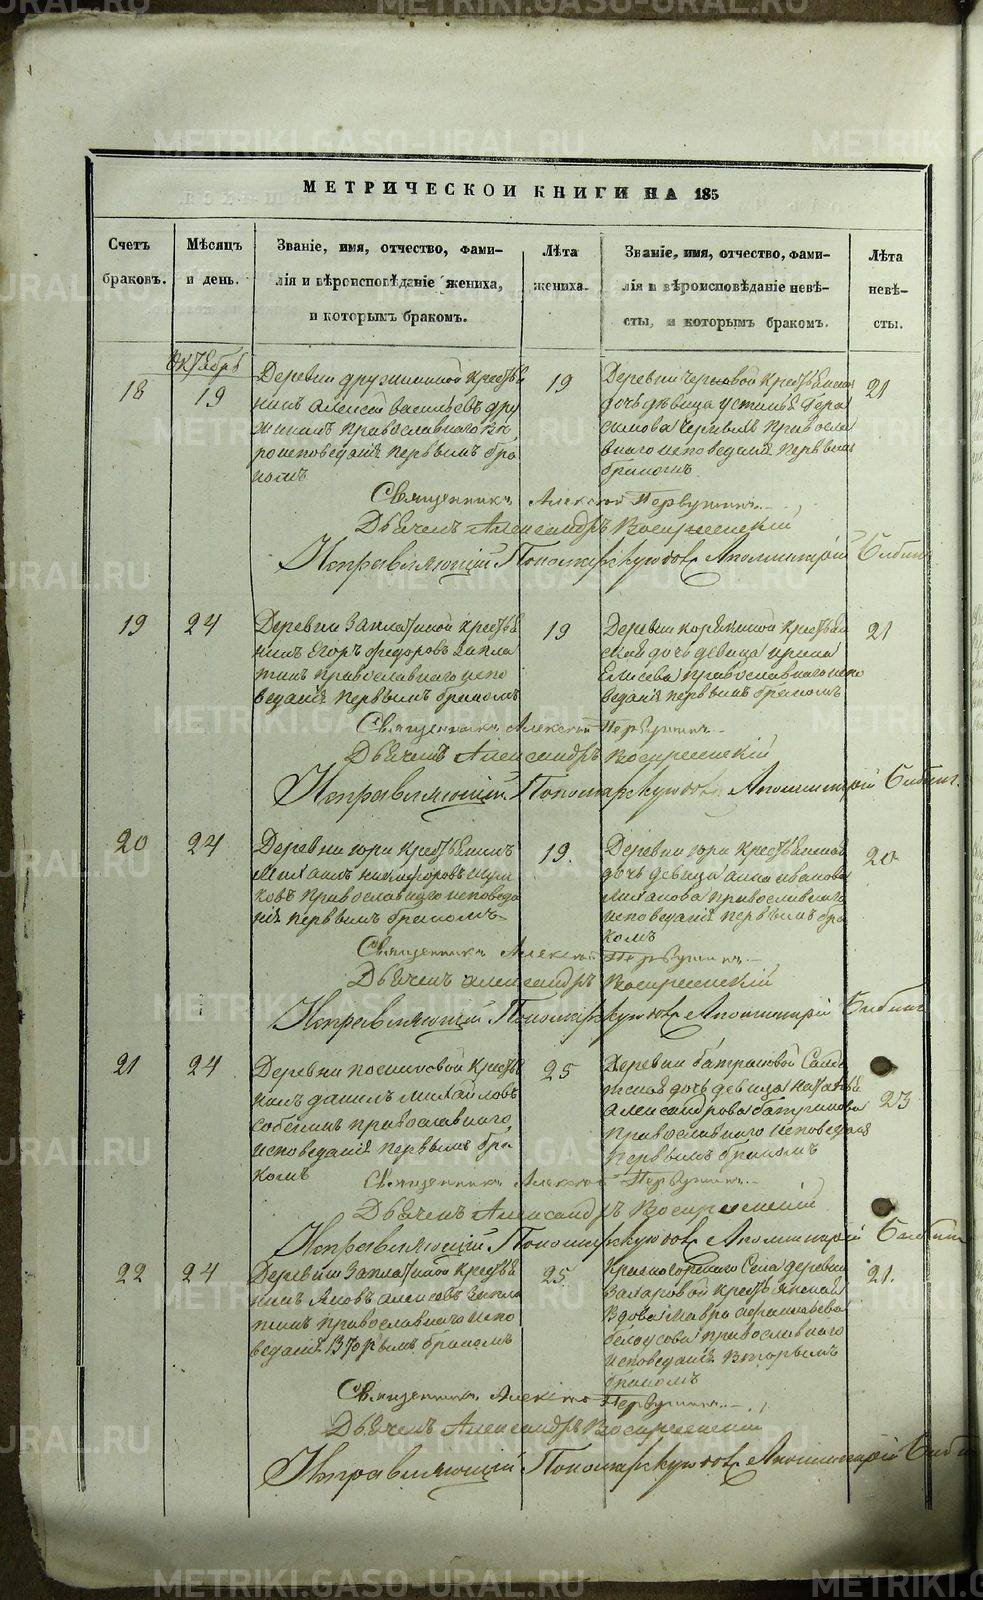 МЕТРИЧЕСКОЙ КНИГИ НА 185
Счетъ браковъ.
Мѣсяцъ и день.
Званіе, имя, отчество, фами-
лія и вѣроисповѣданіе жениха,
и которымъ бракомъ.
Лѣта жениха.
Званіе, имя, отчество, фами-
лія и вѣроисповѣданіе невѣ-
сты, и которымъ бракомъ.
Лѣта невѣ-
сты.
Октябрь
18
19
Деревни Дружининой крестья
нинъ Алексей Васильевъ Дру
жининъ православнаго вѣ
роисповеданія первымъ бра
комъ
19
Деревни Черновой крестьянская
дочь девица Устинья Гера
симова православ
наго исповеданія первымъ
бракомъ
21
Священникъ Алексей Первушинъ
Дьячекъ Александръ Воскресенскій
Исправляющій Пономарскую дол. Аполлинарій Бибинъ
19
24
Деревни Заплатиной крестья
нинъ Егоръ Федоровъ Запла
тинъ православнаго испо
веданія первымъ бракомъ
19
Деревни Корякиной крестьян
ская дочь девица Ирина
Елисева православнаго испо
веданія первымъ бракомъ
21
Священникъ Алексей Первушинъ
Дьячекъ Александръ Воскресенскій
Исправляющій Пономарскую дол. Аполлинарій Бибинъ
20
24
Деревни Гори крестьянинъ
Михаилъ Никифоровъ
православнаго исповеда
нія первымъ бракомъ
19.
Деревни Гори крестьянская
дочь девица Анна Иванова
православнаго
исповеданія первымъ бра
комъ
20
Священникъ Алексей Первушинъ
Дьячекъ Александръ Воскресенскій
Исправляющій Пономарскую дол. Аполлинарій Бибинъ
21
24
Деревни крестья
нинъ Данилъ Михайловъ
Собенинъ православнаго
исповеданія первымъ бра
комъ
25
Деревни Батраковой Солда
тская дочь девица Наталья
Александрова Батракова
православнаго исповеданія
первымъ бракомъ
23
Священникъ Алексей Первушинъ
Дьячекъ Александръ Воскресенскій
Исправляющій Пономарскую дол. Аполлинарій Бибинъ
22
24
Деревни Заплатиной крестья
нинъ Яковъ Запла
тинъ православнаго испо
веданія вторымъ бракомъ
25
Красногорскаго Села деревни
Захаровой крестьянская
вдова Мавра
Белоусова православнаго
исповеданія вторымъ
бракомъ
21.
Священникъ Алексей Первушинъ
Дьячекъ Александръ Воскресенскій
Исправляющій Пономарскую дол. Аполлинарій Биби
METRIKI.GASO-URAL.RU